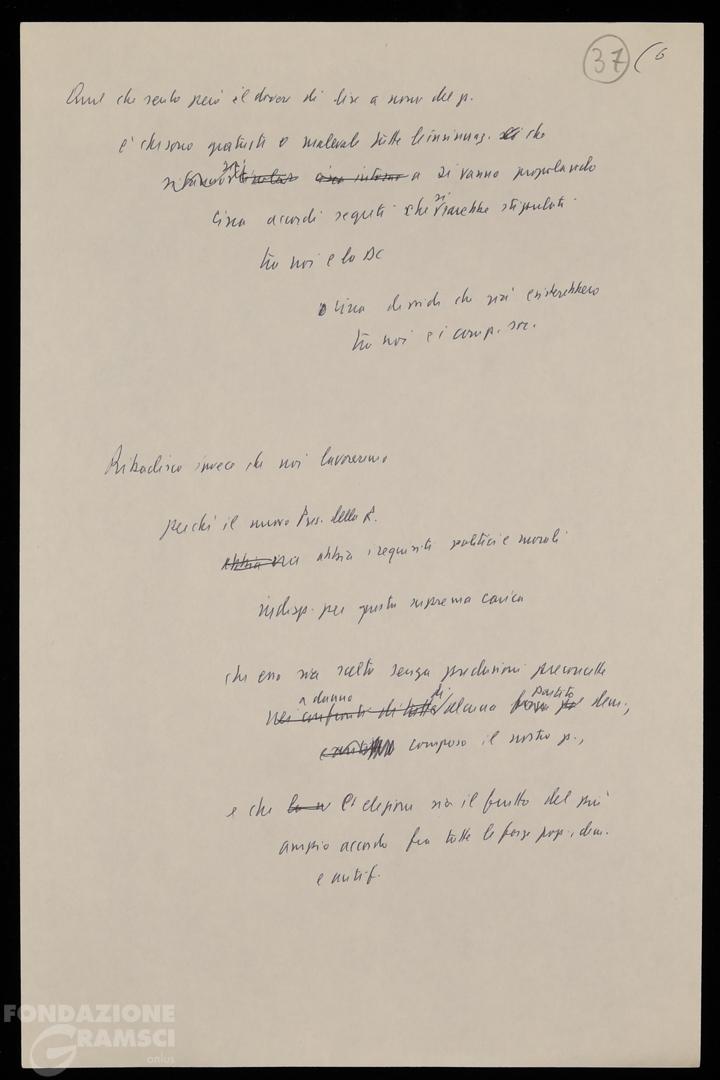 37 (6
Quel che sento però il dovere di dire a nome del p.
è che sono gratuite o malevole tutte le insinuaz. che
si vanno propalando
circa accordi segreti che si sarebbe stipulati
tra noi e la DC
o circa dissidi che già esisterebbero
tra noi e i comp. soc.
Ribadisco invece che noi lavoreremo
perché il nuovo Pres. della R.
abbia sia abbia i requisiti politici e morali
indisp. per questa suprema carica
che esso sia scelto senza preclusioni preconcette
a danno di partito
nei confronti di tutte alcuna forza dem.,
compreso il nostro p.,
e che la l'elezione sia il frutto del più
ampio accordo fra tutte le forze pop., dem.
e antif.
FONDAZIONE
GRAMSCI
onlus